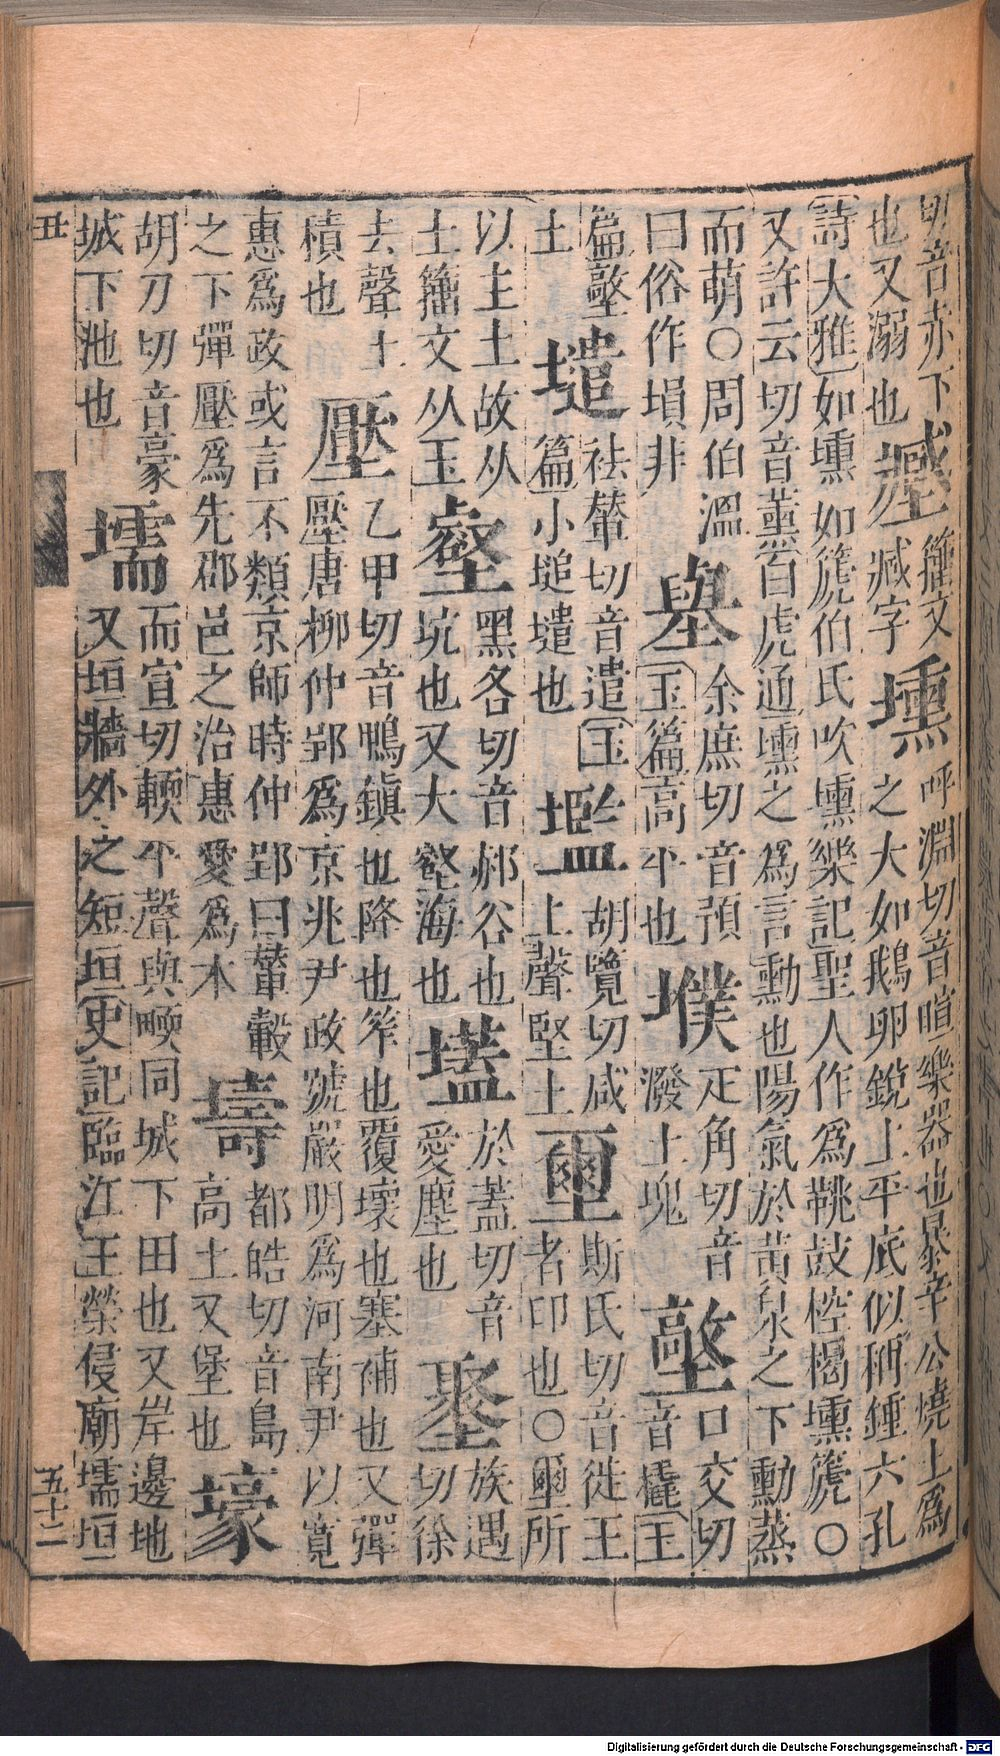 切音赤下
也又溺也
籀文
臧字
壎
呼淵切音喧樂器也暴辛公燒土爲
之大如鵝卵銳上平底似稱錘六孔
詩大雅如壎如篪伯氏吹壎樂記聖人作爲鞉鼓椌楬壎篪○
又許云切音薰白虎通壎之爲言勳也陽氣於黃泉之下勳蒸
而萌○周伯溫
曰俗作塤非
余庶切音預
玉篇高平也
墣
疋角切音
潑土塊
口交切
音橇玉
篇
土
祛輦切音遣玉
篇小塠也
壏
胡覽切咸
上聲堅土
壐
斯氏切音徙王
者印也○壐所
以主土故从
土籀文从玉
壑
黑各切音郝谷也
坑也又大壑海也
壒
於蓋切音
愛塵也
族遇
切徐
去聲土
積也
壓
乙甲切音鴨鎮也降也笮也覆壞也塞補也又彈
壓唐柳仲郢爲京兆尹政號嚴明爲河南尹以寬
惠爲政或言不類京師時仲郢曰輦轂
之下彈壓爲先郡邑之治惠愛爲本
壔
都皓切音島
高土又堡也
壕
胡刀切音豪
城下池也
壖
而宣切輭平聲與㬉同城下田也又岸邊地
又垣牆外之短垣史記臨江王榮侵廟壖垣
丑
五十二
Digitalisierung gefördert durch die Deutsche Forschungsgemeinschaft - DFG